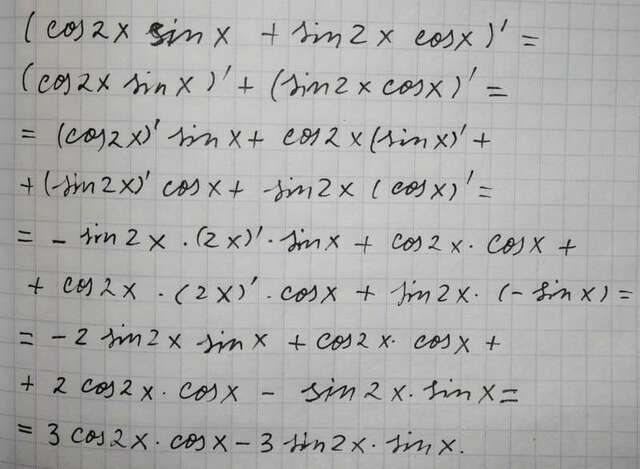 (cos2x sin x + sin2x cosx)' =
(cos2x sinx)' + (sin2x cosx)' =
= (cos2x)' sinx + cos2x (sinx)' +
+ (sin2x)' cosx + sin2x (cosx)' =
= - sin2x · (2x)' · sinx + cos2x · cosx +
+ cos2x · (2x)' · cosx + sin2x · (- sinx) =
= -2 sin2x sinx + cos2x · cosx +
+ 2 cos2x · cosx - sin2x · sinx =
= 3 cos2x · cosx - 3 sin2x · sinx.